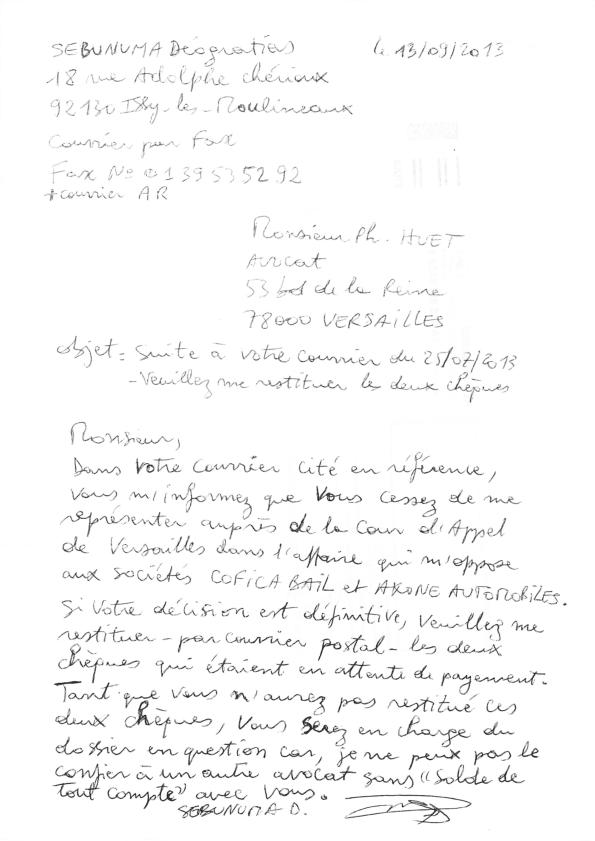 SEBUNUMA Déogratias le 13/09/2013
18 rue Adolphe chérioux
92130 Issy-les-Moulineaux
Courrier par Fax
Fax No 0139535292
+courrier AR
Monsieur Ph. HUET
Avocat
53 bd de la Reine
78000 VERSAILLES
objet: suite à votre courrier du 25/07/2013
- Veuillez me restituer les deux chèques
Monsieur,
Dans votre courrier cité en référence,
vous m'informez que vous cessez de me
représenter auprès de la Cour d'Appel
de Versailles dans l'affaire qui m'oppose
aux sociétés COFICA BAIL et AKONE AUTOMOBILES.
Si votre décision est définitive, veuillez me
restituer - par courrier postal - les deux
chèques qui étaient en attente de payement.
Tant que vous n'aurez pas restitué ces
deux chèques, vous serez en charge du
dossier en question car, je ne peux pas le
confier à un autre avocat sans "Solde de
tout compte" avec vous.
SEBUNUMA D.